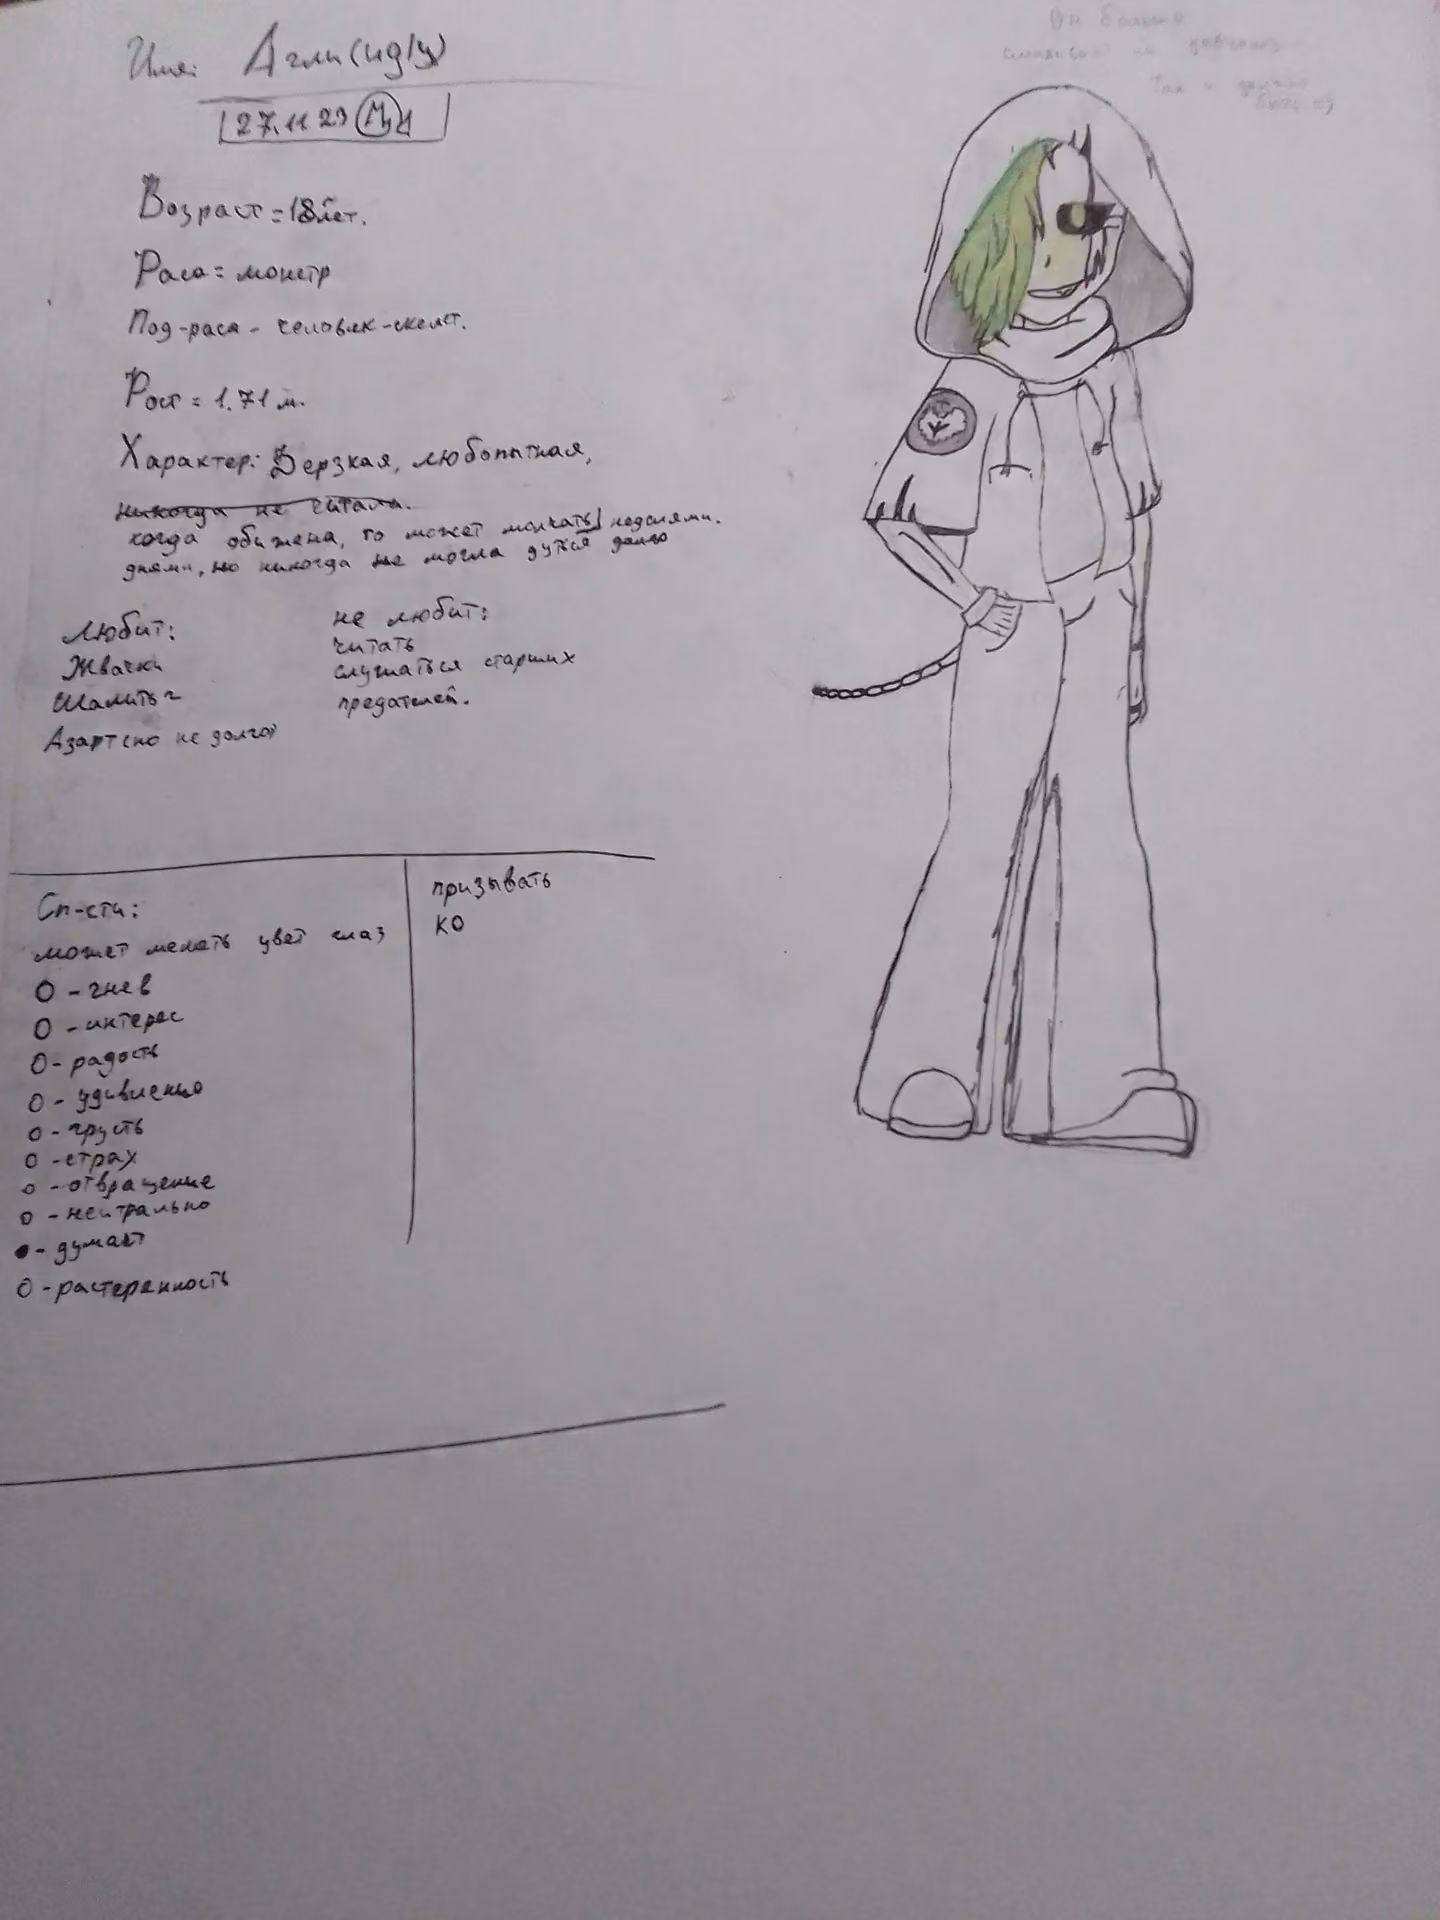 Имя: Агли
27.11.23
Возраст = 18 лет.
Раса = монстр
Под-раса - человек-скелет.
Рост = 1.71 м.
Характер: Дерзкая, любопытная,
никогда не читала.
когда обижена, то может молчать неделями.
днями, но никогда не могла дуться долго
Любит:
Жвачки
Шалить
Азарт (но не долго)
не любит:
читать
слушаться старших
предателей.
Сп-сти:
может менать цвет глаз
О - гнев
О - интерес
О - радость
О - удивление
О - грусть
О - страх
О - отвращение
О - нейтрально
- думает
О - растеранность
призывать
КО